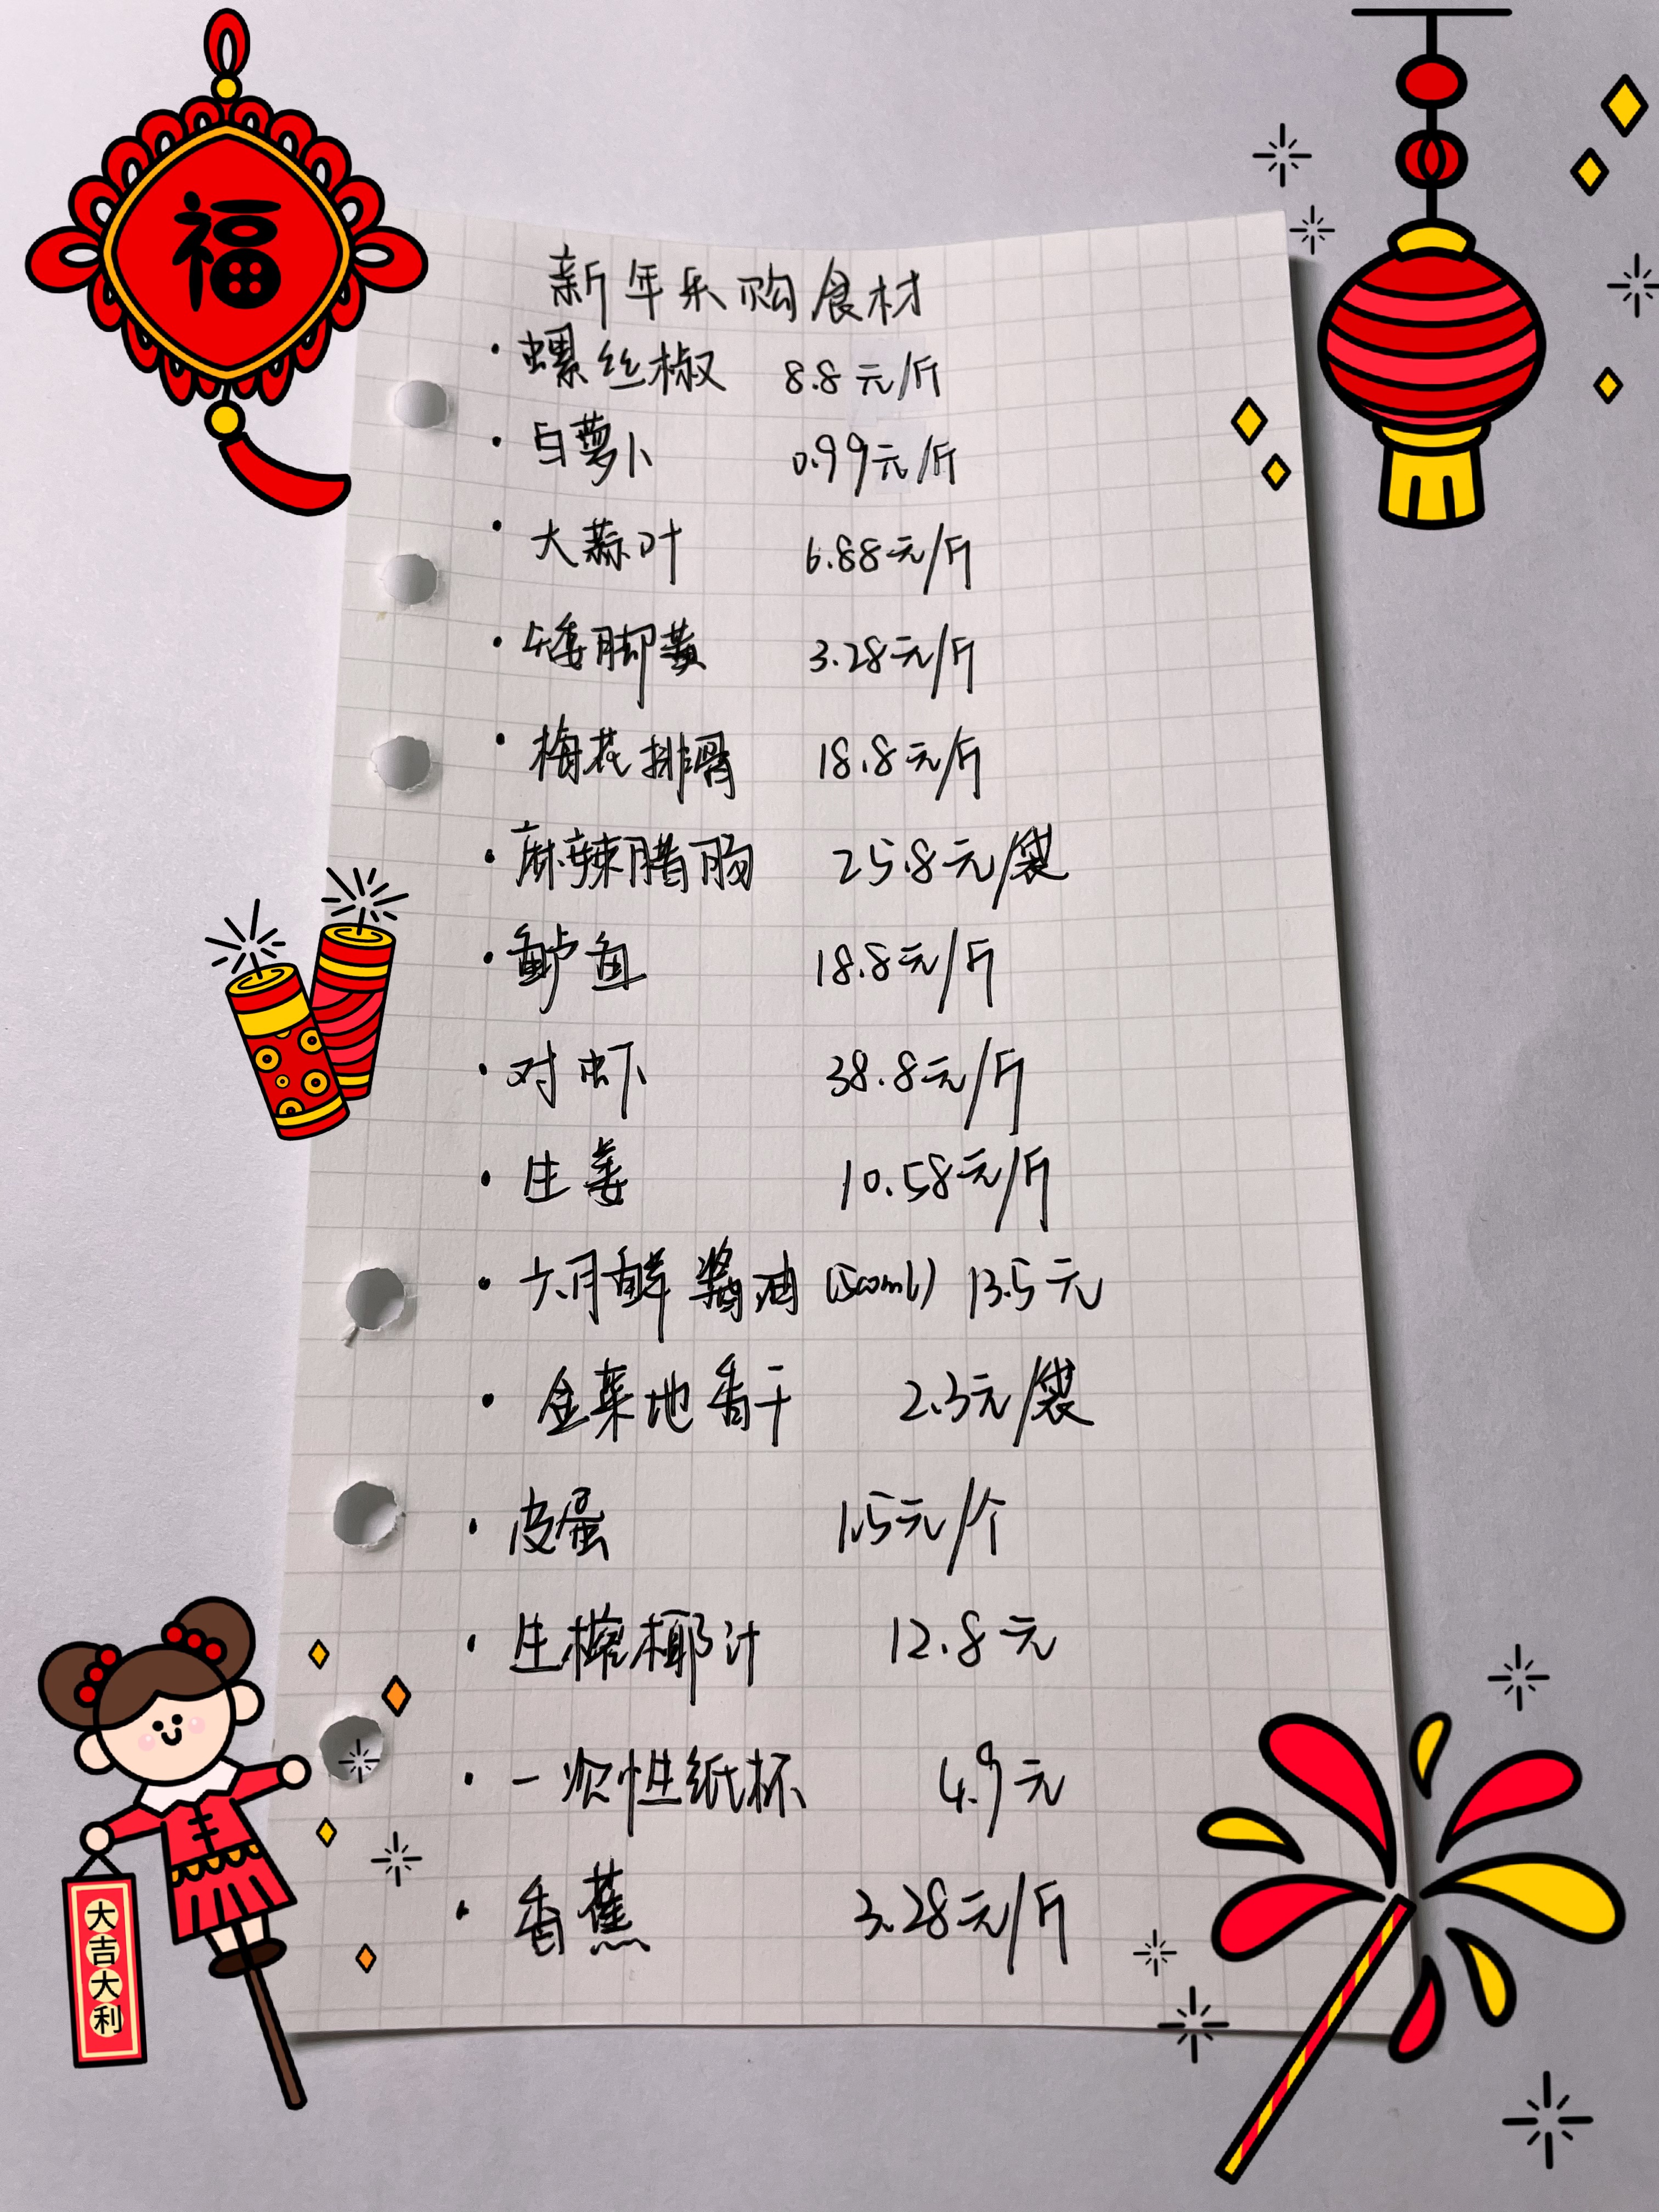 福
新年乐购食材
· 螺丝椒 8.8元/斤
· 白萝卜 0.99元/斤
· 大蒜叶 6.88元/斤
· 矮脚黄 3.28元/斤
· 梅花排骨 18.8元/斤
· 麻辣腊肠 25.8元/袋
· 鲈鱼 18.8元/斤
· 对虾 38.8元/斤
· 生姜 10.58元/斤
· 六月鲜酱油(500ml) 13.5元
· 金菜地香干 2.3元/袋
· 皮蛋 1.5元/个
· 生榨椰汁 12.8元
· 一次性纸杯 4.9元
· 香蕉 3.28元/斤
大吉大利